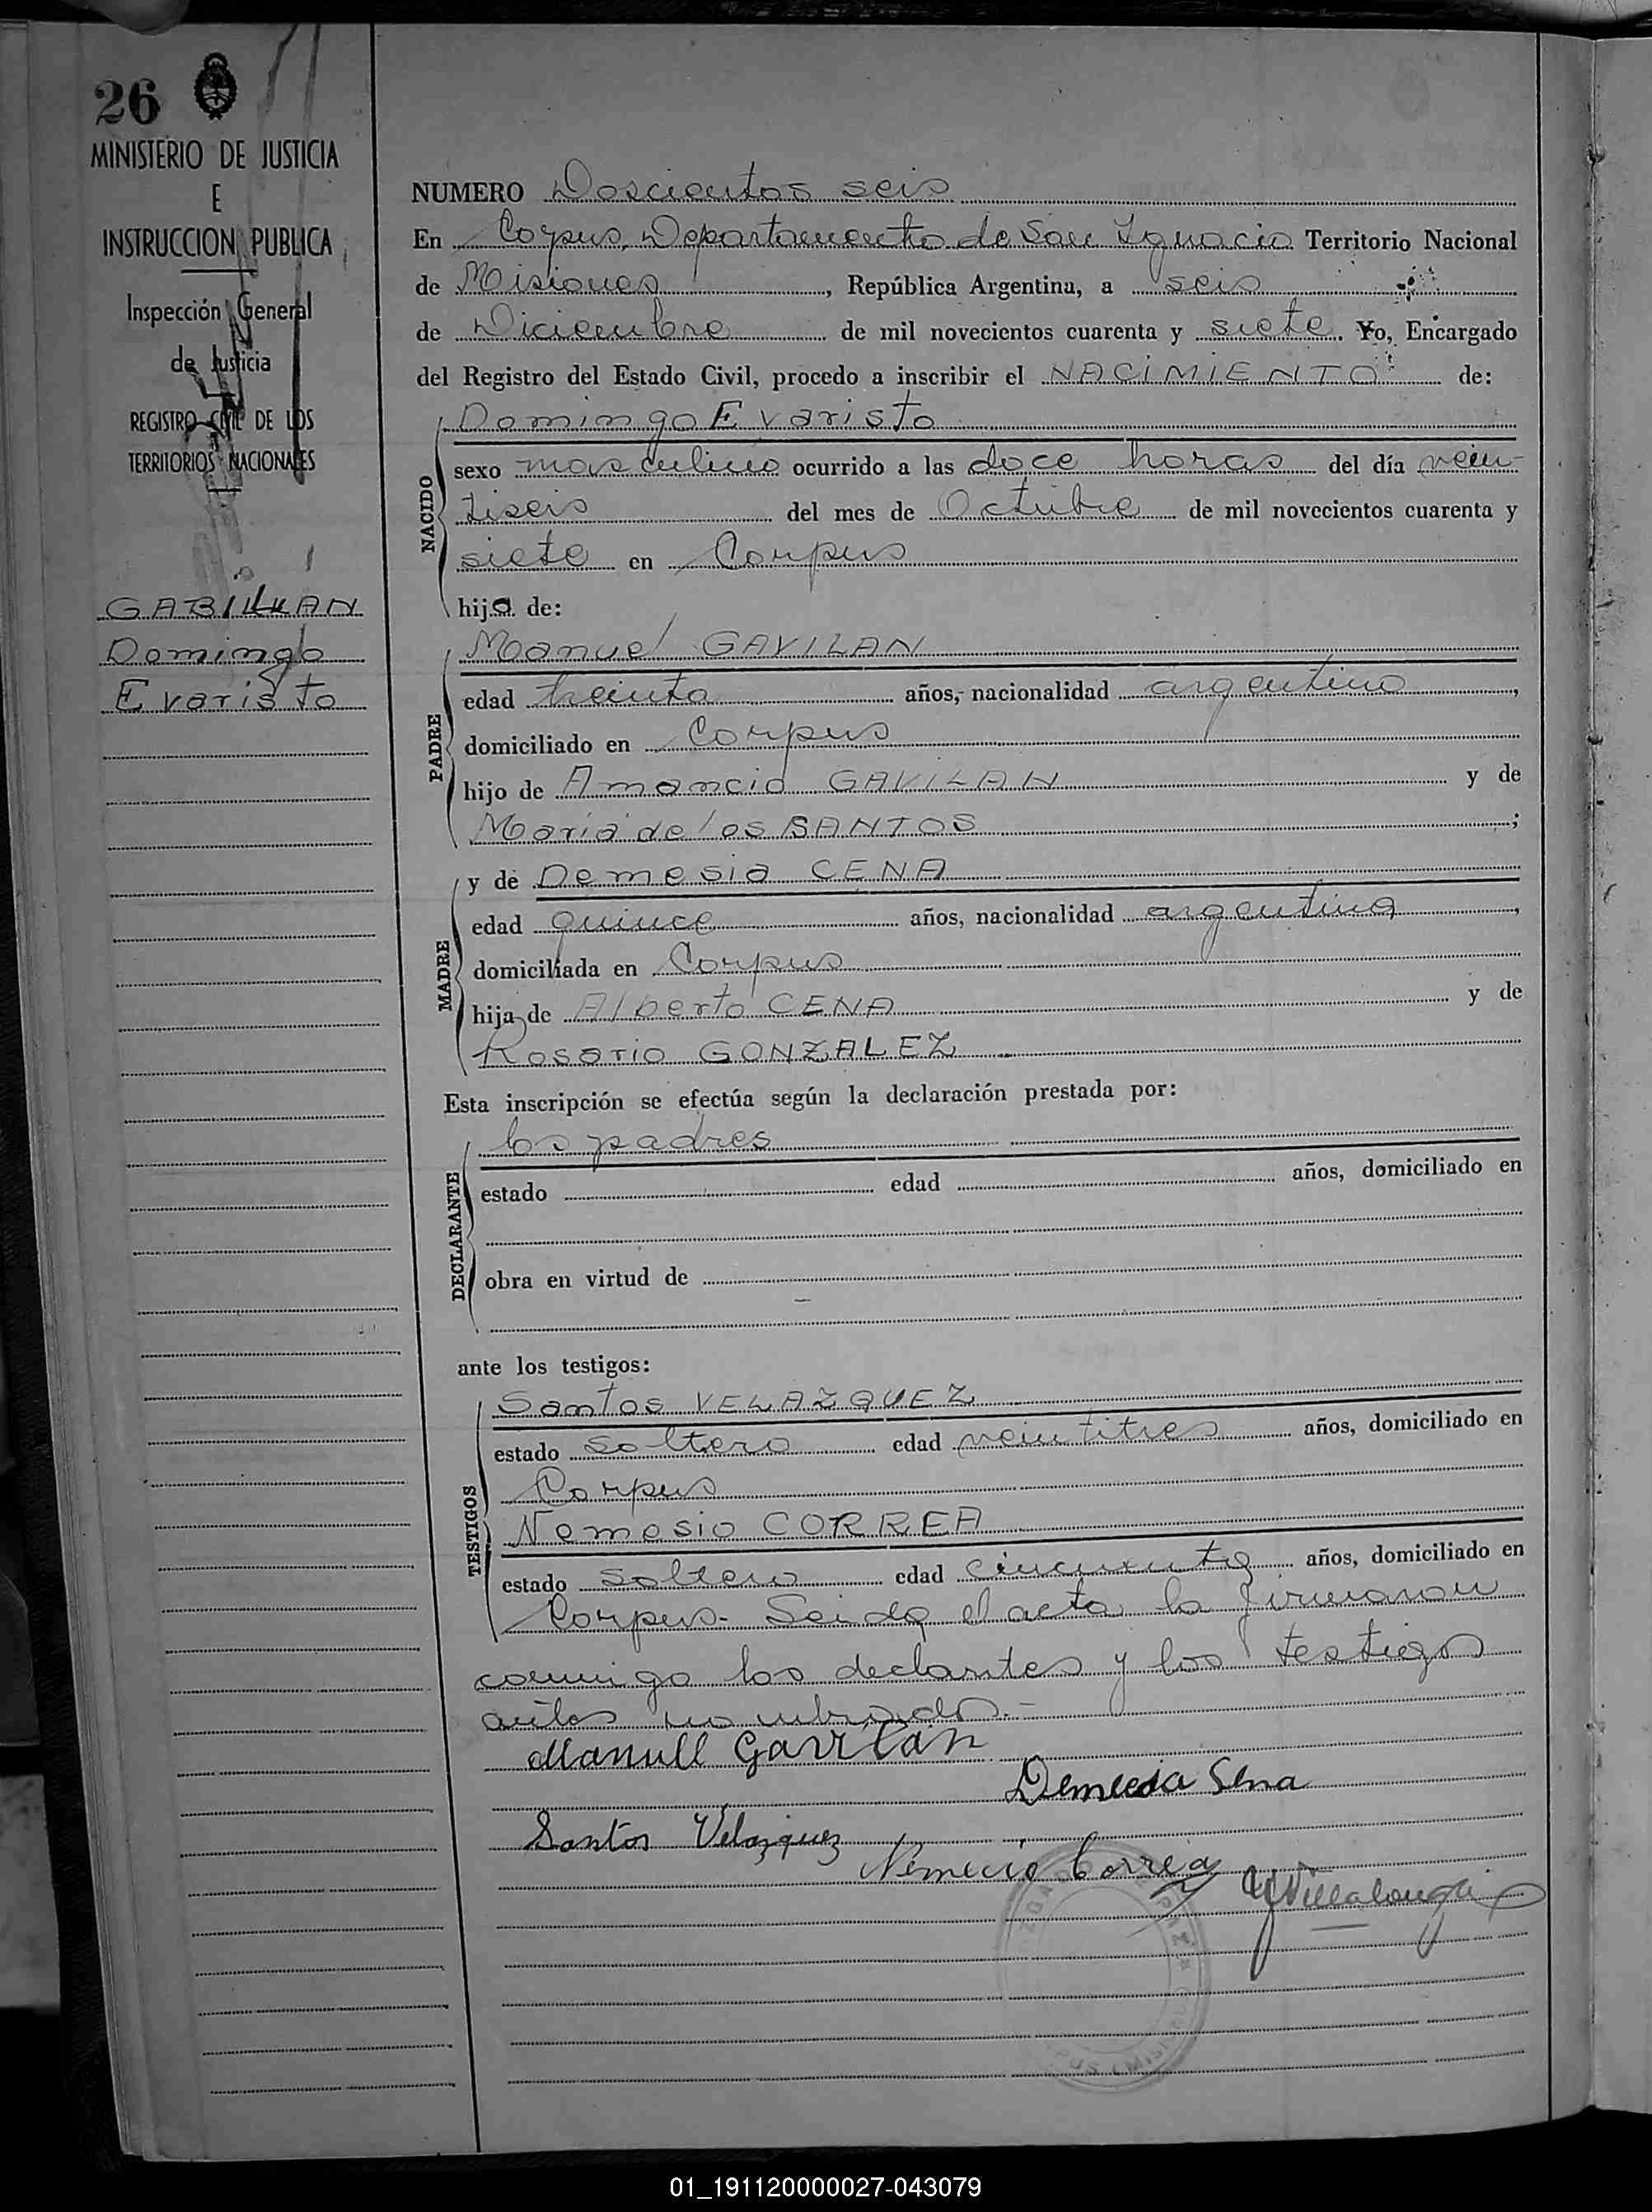 26
MINISTERIO DE JUSTICIA
E
INSTRUCCION PUBLICA
Inspección General
de Justicia
REGISTRO CIVIL DE LOS
TERRITORIOS NACIONALES
Domingo
Evaristo
NUMERO Doscientos seis
En Corpus, Departamento de San Ignacio Territorio Nacional
de Misiones, República Argentina, a seis
de Diciembre de mil novecientos cuarenta y siete. Yo, Encargado
del Registro del Estado Civil, procedo a inscribir el NACIMIENTO de:
Domingo Evaristo
NACIDO
sexo masculino ocurrido a las doce horas del día vein-
tiseis del mes de Octubre de mil novecientos cuarenta y
siete en Corpus
hijo de:
Manuel GAVILAN
PADRE
edad treinta años, nacionalidad argentino,
domiciliado en Corpus
hijo de Amancio GAVILAN y de
Maria de los SANTOS;
y de Demesia CENA
MADRE
edad quince años, nacionalidad argentina,
domiciliada en Corpus
hija de Alberto CENA y de
Rosario GONZALEZ
Esta inscripción se efectúa según la declaración prestada por:
los padres
DECLARANTE
estado edad años, domiciliado en
obra en virtud de
ante los testigos:
Santos VELAZQUEZ
TESTIGOS
estado soltero edad veintitres años, domiciliado en
Corpus
Nemesio CORREA
estado soltero edad cincuenta años, domiciliado en
Corpus- Leida el acta la firmaron
conmigo los declarantes y los testigos
antes nombrados.-
Manuel Gavilan
Demecia Sena
Santos Velazquez
Nemecio Correa
01_191120000027-043079